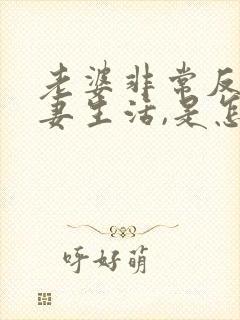 老婆非常反
妻生活,是怎
呼好萌